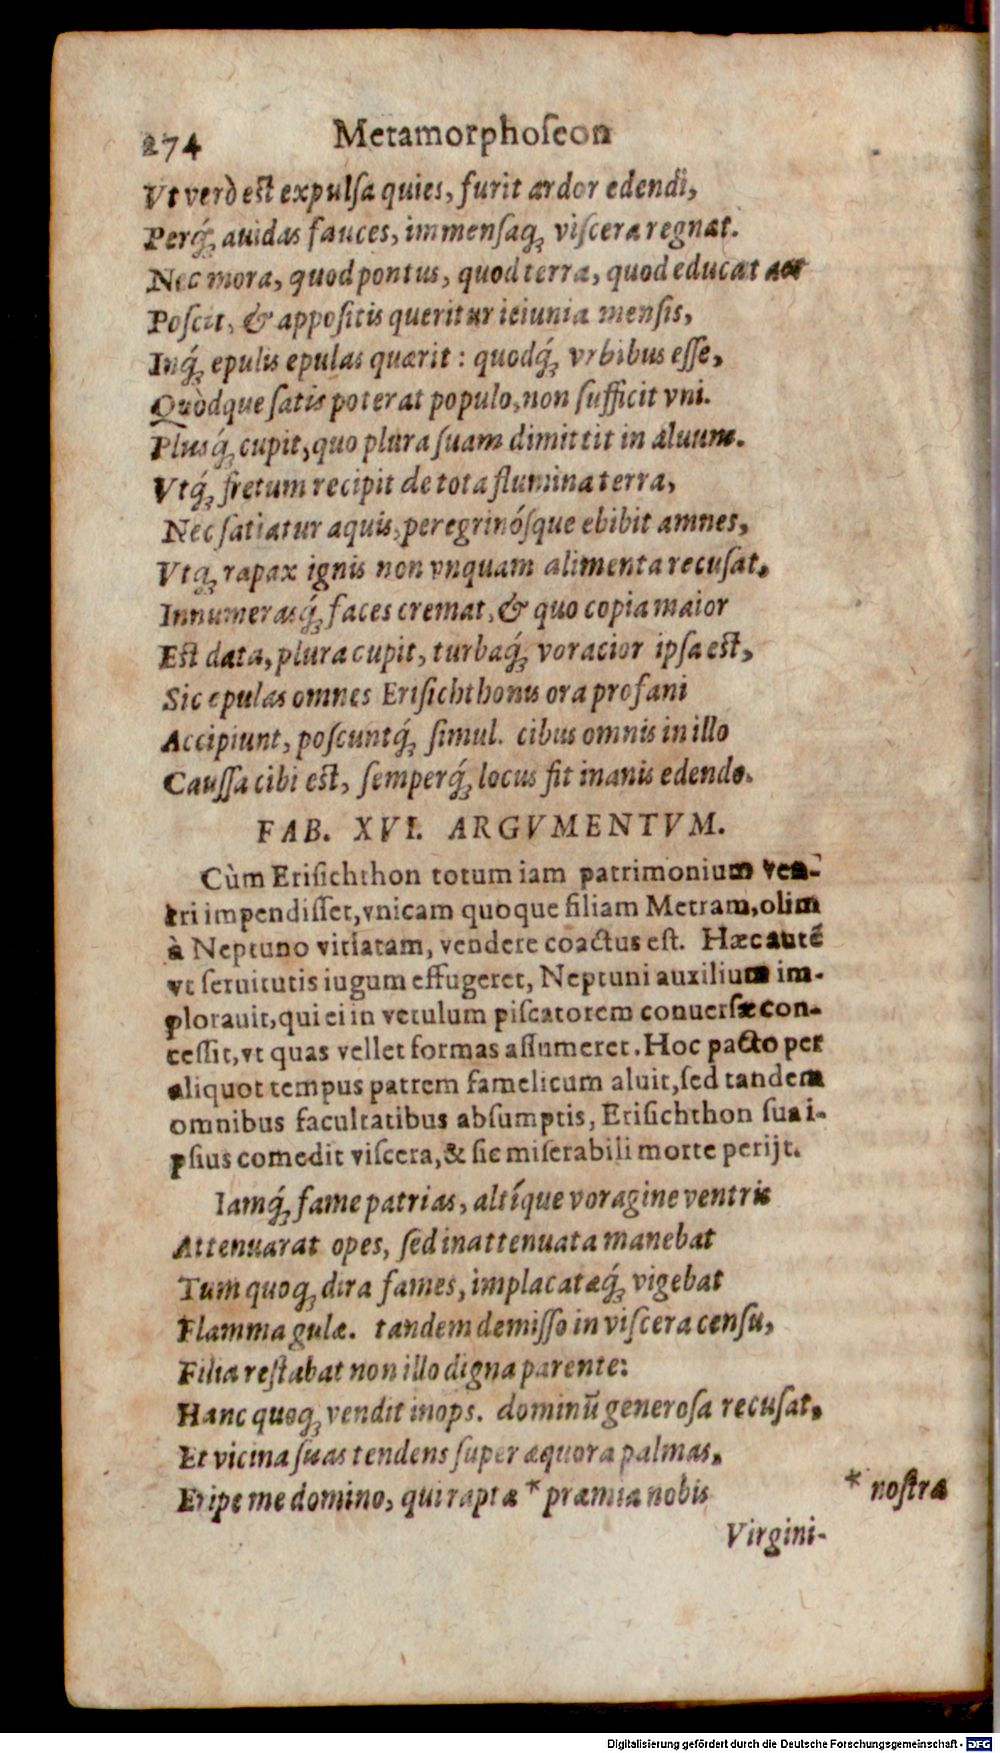 274 Metamorphoſeon
Vt verò eſt expulſa quies, furit ardor edendi,
Perq́; auidas fauces, immenſaq; viſcera regnat.
Nec mora, quod pontus, quod terra, quod educat aer
Poſcit, & appoſitis queritur ieiunia menſis,
Inq́; epulis epulas quærit: quodq́; vrbibus eſſe,
Quòdque ſatis poterat populo, non ſufficit vni.
Plusq́; cupit, quo plura ſuam dimittit in aluum.
Vtq́; fretum recipit de tota flumina terra,
Nec ſatiatur aquis, peregrinóſque ebibit amnes,
Vtq; rapax ignis non vnquam alimenta recuſat,
Innumerasq́; faces cremat, & quo copia maior
Eſt data, plura cupit, turbaq́; voracior ipſa eſt,
Sic epulas omnes Eriſichthonis ora profani
Accipiunt, poſcuntq́; ſimul. cibus omnis in illo
Cauſſa cibi eſt, ſemperq́; locus fit inanis edendo.
FAB. XVI. ARGVMENTVM.
Cùm Eriſichthon totum iam patrimonium ven-
tri impendiſſet, vnicam quoque filiam Metram, olim
à Neptuno vitiatam, vendere coactus eſt. Hæc autē
vt ſeruitutis iugum effugeret, Neptuni auxilium im-
plorauit, qui ei in vetulum piſcatorem conuerſæ con-
ceſſit, vt quas vellet formas aſſumeret. Hoc pacto per
aliquot tempus patrem famelicum aluit, ſed tandem
omnibus facultatibus abſumptis, Eriſichthon ſua i-
pſius comedit viſcera, & ſic miſerabili morte perijt.
Iamq́; fame patrias, altíque voragine ventris
Attenuarat opes, ſed inattenuata manebat
Tum quoq; dira fames, implacatæq́; vigebat
Flamma gulæ. tandem demiſſo in viſcera cenſu,
Filia reſtabat non illo digna parente:
Hanc quoq; vendit inops. dominū generoſa recuſat,
Et vicina ſuas tendens ſuper æquora palmas,
Eripe me domino, qui raptæ * præmia nobis
* noſtræ
Virgini-
Digitalisierung gefördert durch die Deutsche Forschungsgemeinschaft - DFG